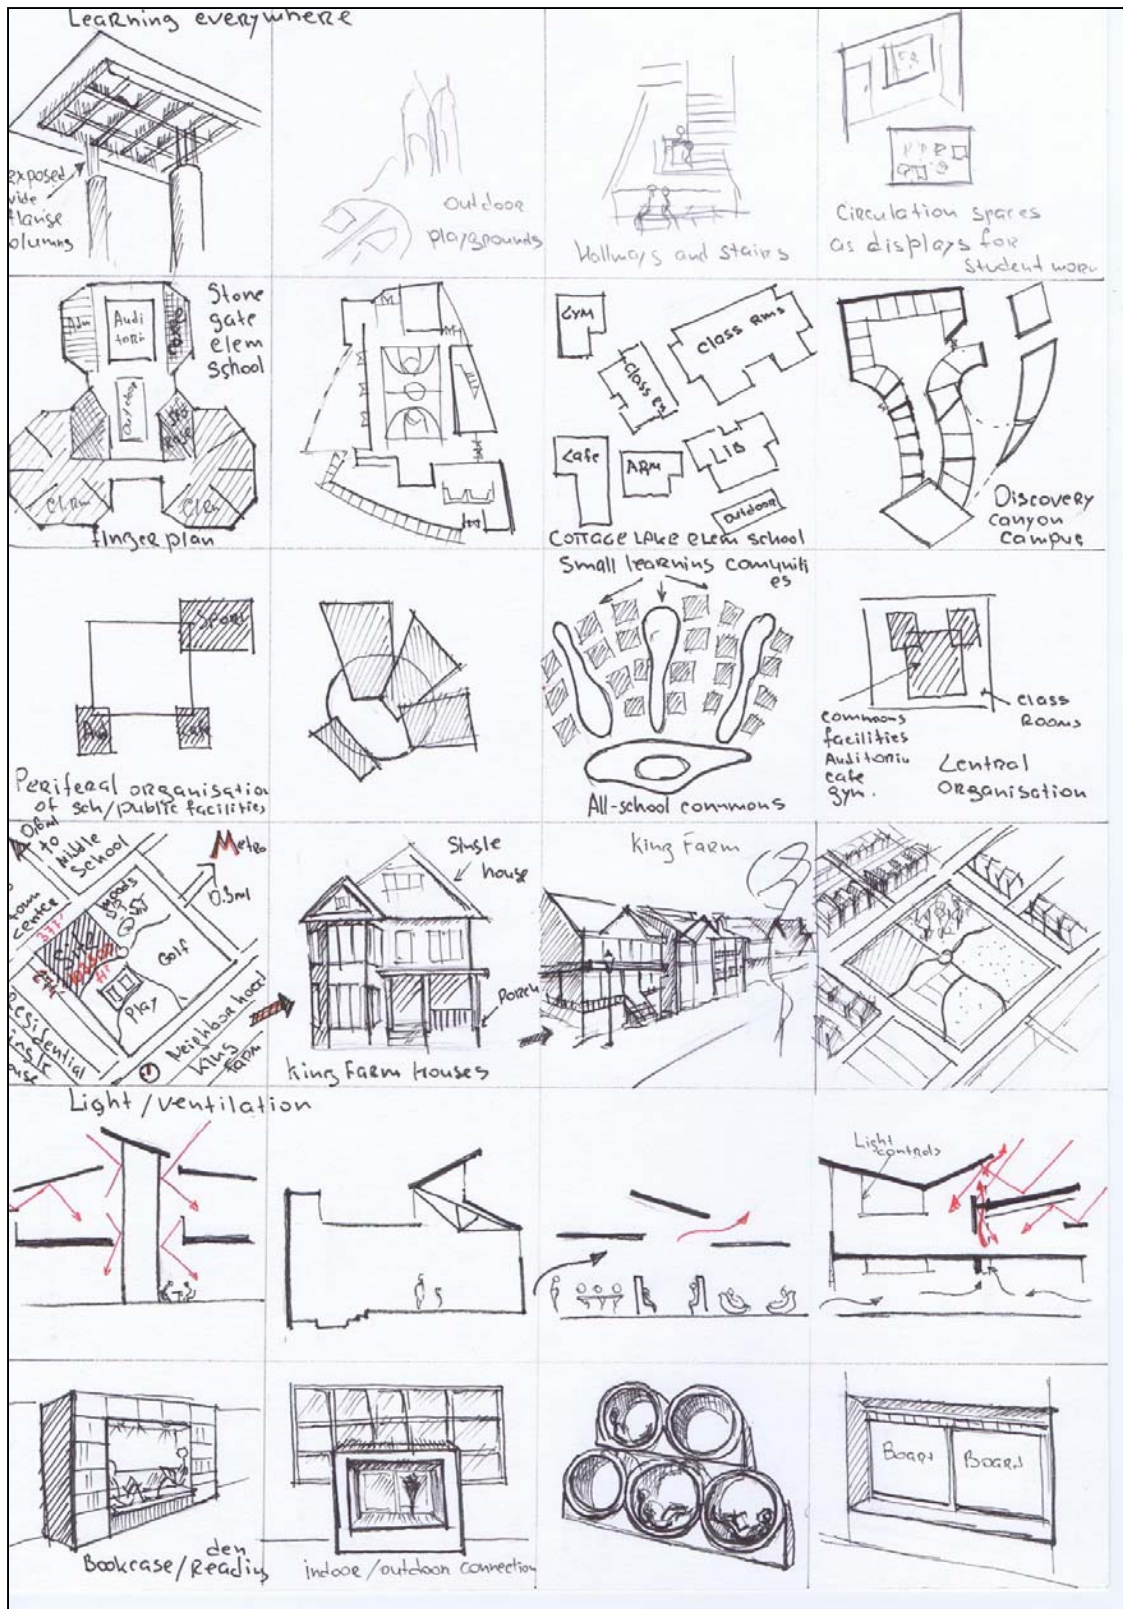 Learning everywhere
exposed
wide
flange
columns
Outdoor
playgrounds
Hallways and stairs
Circulation spaces
as displays for
Student work
Adm
Audi
tori
Stone
gate
elem
school
Cl.Rm
Cl.Rm
finger plan
GYM
Class Rms
Class es
Cafe
ADM
LIB
outdoor
Cottage Lake elem school
Discovery
canyon
campus
Sport
Cafe
Periferal organisation
of sch/public facilities
Small learning comuniti
es
All-school commons
commons
facilities
Auditoriu
cafe
gym.
class
Rooms
Central
Organisation
0.6ml
to
Middle
School
Metro
0.3ml
town
centre
377'
Woods
Site
Golf
Play
Residential
single
Neighborhood
King
Farm
Single
house
Porch
King Farm Houses
King Farm
Light/ventilation
Light
controls
den
Bookcase/Reading
indoor/outdoor connection
Board
Board